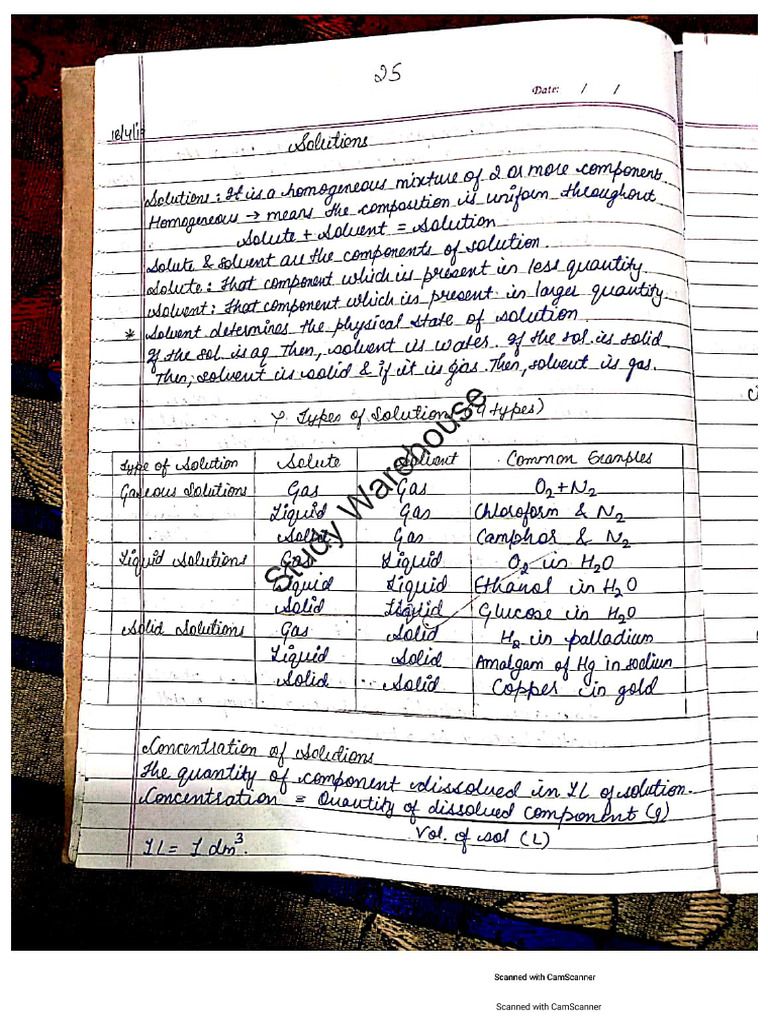 25
Date: / /
18/4/17
Solutions
Solutions: It is a homogeneous mixture of 2 or more components.
Homogeneous → means the composition is uniform throughout
Solute + Solvent = Solution
Solute & solvent are the components of solution.
Solute: That component which is present in less quantity.
Solvent: That component which is present in larger quantity.
* Solvent determines the physical state of solution.
If the sol is aq Then, solvent is water. If the sol. is solid
Then, solvent is solid & if it is gas. Then, solvent is gas.
Types of Solutions (9 types)
Type of Solution Solute Solvent Common Examples
Gaseous Solutions Gas Gas O₂+N₂
Liquid Gas Chloroform & N₂
Solid Gas Camphor & N₂
Liquid Solutions Gas Liquid O₂ in H₂O
Liquid Liquid Ethanol in H₂O
Solid Liquid Glucose in H₂O
Solid Solutions Gas Solid H₂ in palladium
Liquid Solid Amalgam of Hg in sodium
Solid Solid Copper in gold
Study Warehouse
Concentration of Solutions
The quantity of component dissolved in 1L of solution.
Concentration = Quantity of dissolved component (g)
Vol. of sol (L)
1L = 1 dm³.
Scanned with CamScanner
Scanned with CamScanner